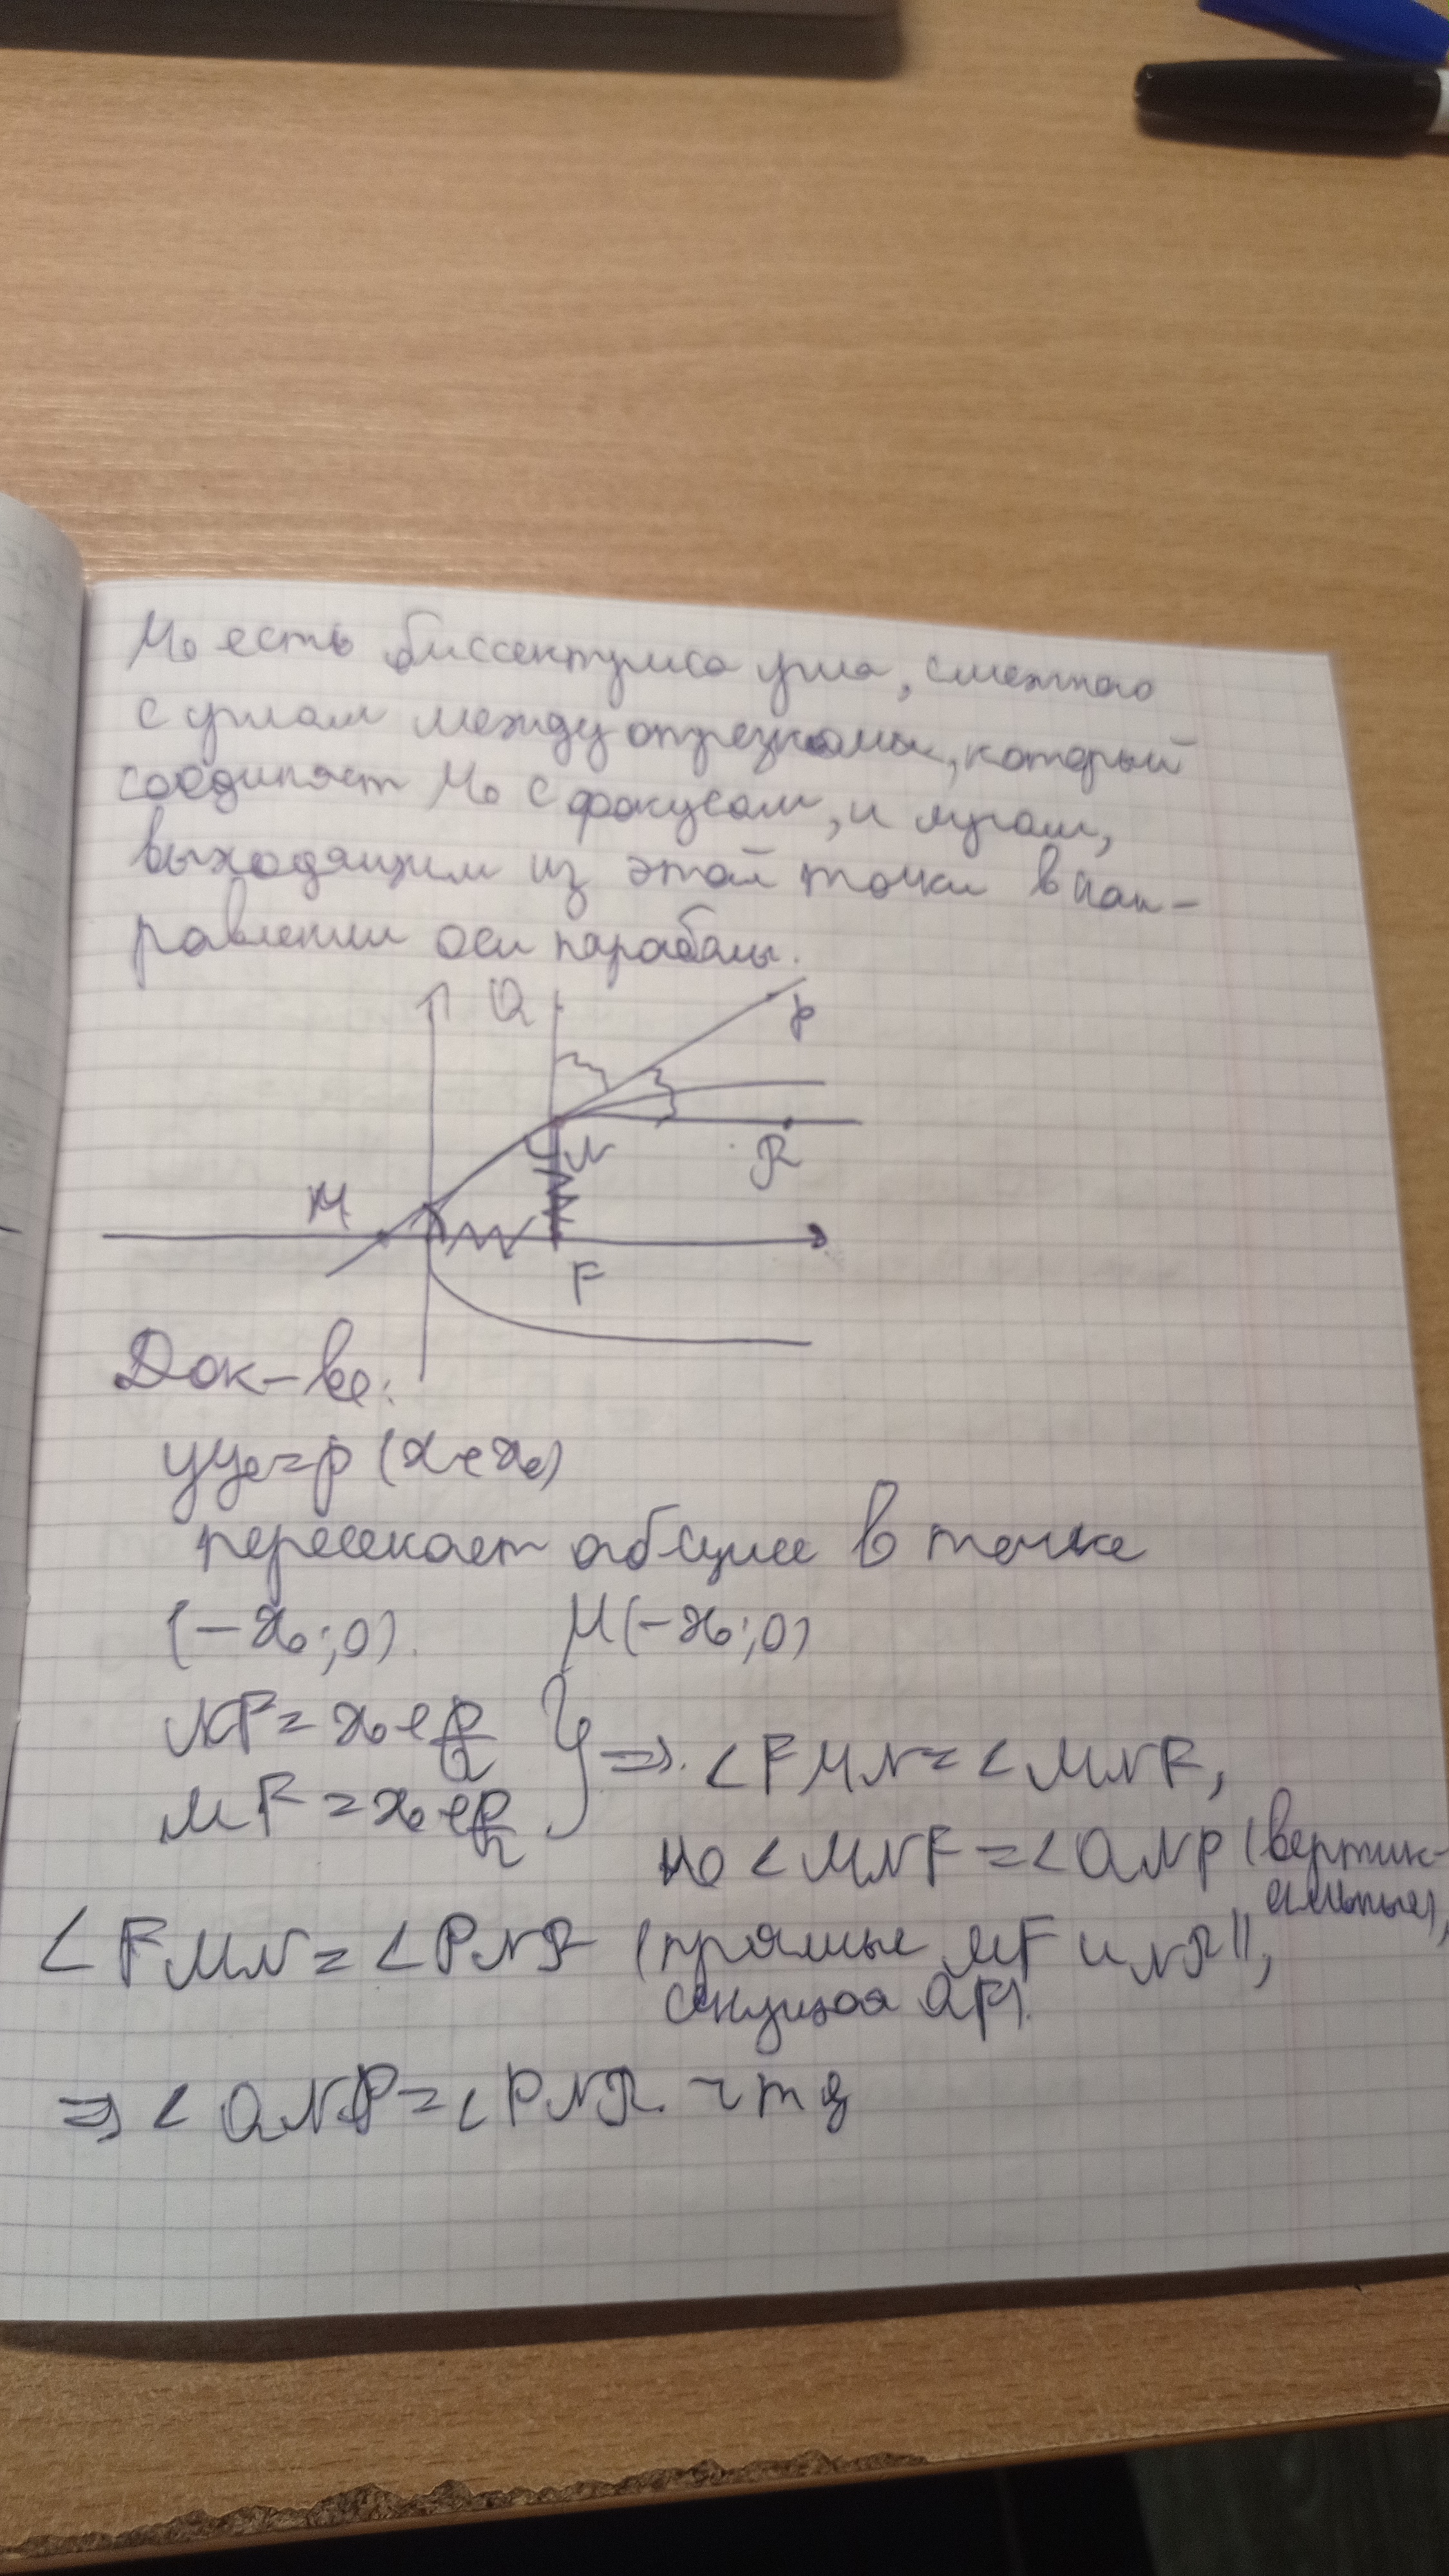 M₀ есть биссектриса угла, смежного
с углом между отрезками, который
соединяет M₀ с фокусом, и лучом,
выходящим из этой точки в нап-
равлении оси параболы.
Q
P
N
R
M
F
Док-во:
yy₀=p(x+x₀)
пересекает абсцисс в точке
(-x₀;0). M(-x₀;0)
NF=x₀+p/2
MF=x₀+p/2 } => ∠FMN=∠MNF,
но ∠MNF=∠QNP (вертик-
альные),
∠FMN=∠PNR (прямые MF и NR ||,
секущая QF).
=> ∠QNP=∠PNR чтд